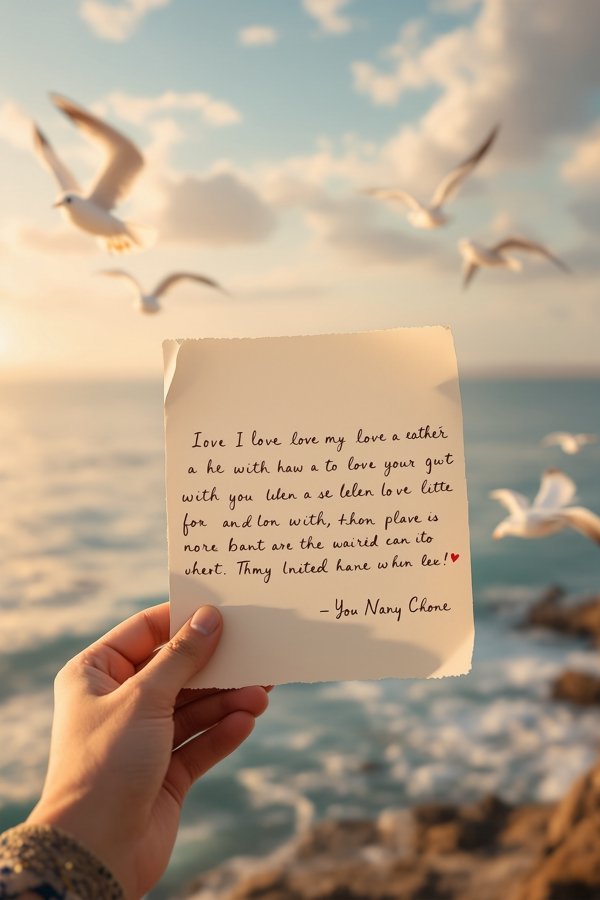 Iove I love love my love a eather
a he with haw a to love your gut
with you Uden a se lelen love litte
for and lon with, thon plave is
nore bant are the wairéd can ito
uhert. Thmy Inited hane whin lee!
– You Nany Chone